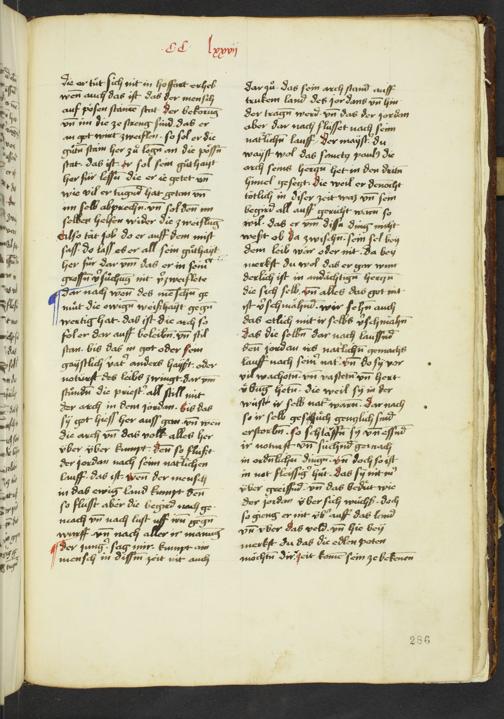 CC lxxvij
die er tuͦt sich nit in hoffart erheb
wen auch das ist das der mensch
auf poͤsen stand stat der bekorung
vn̄ im die ze streng sind das er
an got wirt zweiflen so sol er die
guͤten stain her zuͦ legen an die poͤsen
stat das ist er sol sein guͤthait
her fur lesen die er ie getet vn̄
wie vil er tugend hat getan vn̄
im selb absprech vn̄ sol den im
selber helfen wider die zweiflung
Also tat job do er auff dem mist
sass do lass er all sein guͤthait
her fur dar vm̄ das er in sein
grossen versuͦchung nit verzweiflete
Dar nach wen des menschen ge
muͤt die ewigen weishait gegen
wertig hat das ist die auch so
sol er dar auff beleiben vn̄ stil
stan bis das in got oder sein
gaistlich vater anders haist oder
noturft des leibs zwingt dar vm̄
stuͦnden die priester all still mit
der arch in dem jordan bis das
sy got hiess her auss gan vn̄ wen
die arch vn̄ das volk alles her
vber vber kumpt den so flusst
der jordan nach seim natlichen
lauff das ist wen der mensch
in das ewig land kumpt den
so flusst aber die begird nach ge
mach vn̄ nach lust
wurff vn̄ nach aller
Der junger sag mir kumpt ain
mensch in disem zeit nit auch
dar zuͦ das sein arch stand auff
trukem land des jordans vn̄ hin
der tragen werd vn̄ das der jordan
aber dar nach flusset nach seim
natlichen lauff Der maister du
waist wol das sanctus paulus die
arch seins hertzen het in den driten
himel gesetzt die weil er dennocht
toͤtlich in diser zeit was vn̄ sein
begird all auff gericht wan so
vil das er vm̄ disse ding nicht
west ob da zwischen sein sel bey
dem leib war oder nit da bey
merkst du wol das er gar wun
derlich ist in andaͤchtigen hertzen
die sich selb vn̄ alles das got nit
ist verschmahend wir sehen auch
das etlich nit ir selbs verschmahen
das die selben dar nach laussend
den jordan irs natlichen gemachs
lauff nach seim nat vn̄ do sy vor
vil wachoten vn̄ vasteten vn̄ hert
uͤbung heten die weil sy in der
wuͤst ir selb nat waren dar nach
so ir selb gesuͦch genglich sind
erstorben so schlaffen sy vn̄ essend
ir noturft vn̄ suͦchend gemach
in ordenlichen dingen vn̄ doch so ist
in not fleissig huͦt das sy nit me
uber greiffend vn̄ das bedut wie
der jordan uber sich wuchss doch
so gieng er nit uber auff das land
vn̄ uber das veld vn̄ hie bey
merkst du das die edlen poten
moͤchten die zeit kaum sein ze bekennen
286